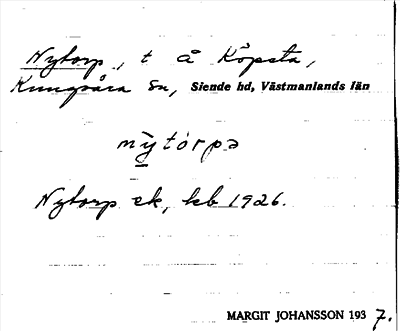 Nytorp, t å Köpsta,
Kungsåra sn, Siende hd, Västmanlands län
nỳtórpə
Nytorp ek, kb 1926.
MARGIT JOHANSSON 1937.